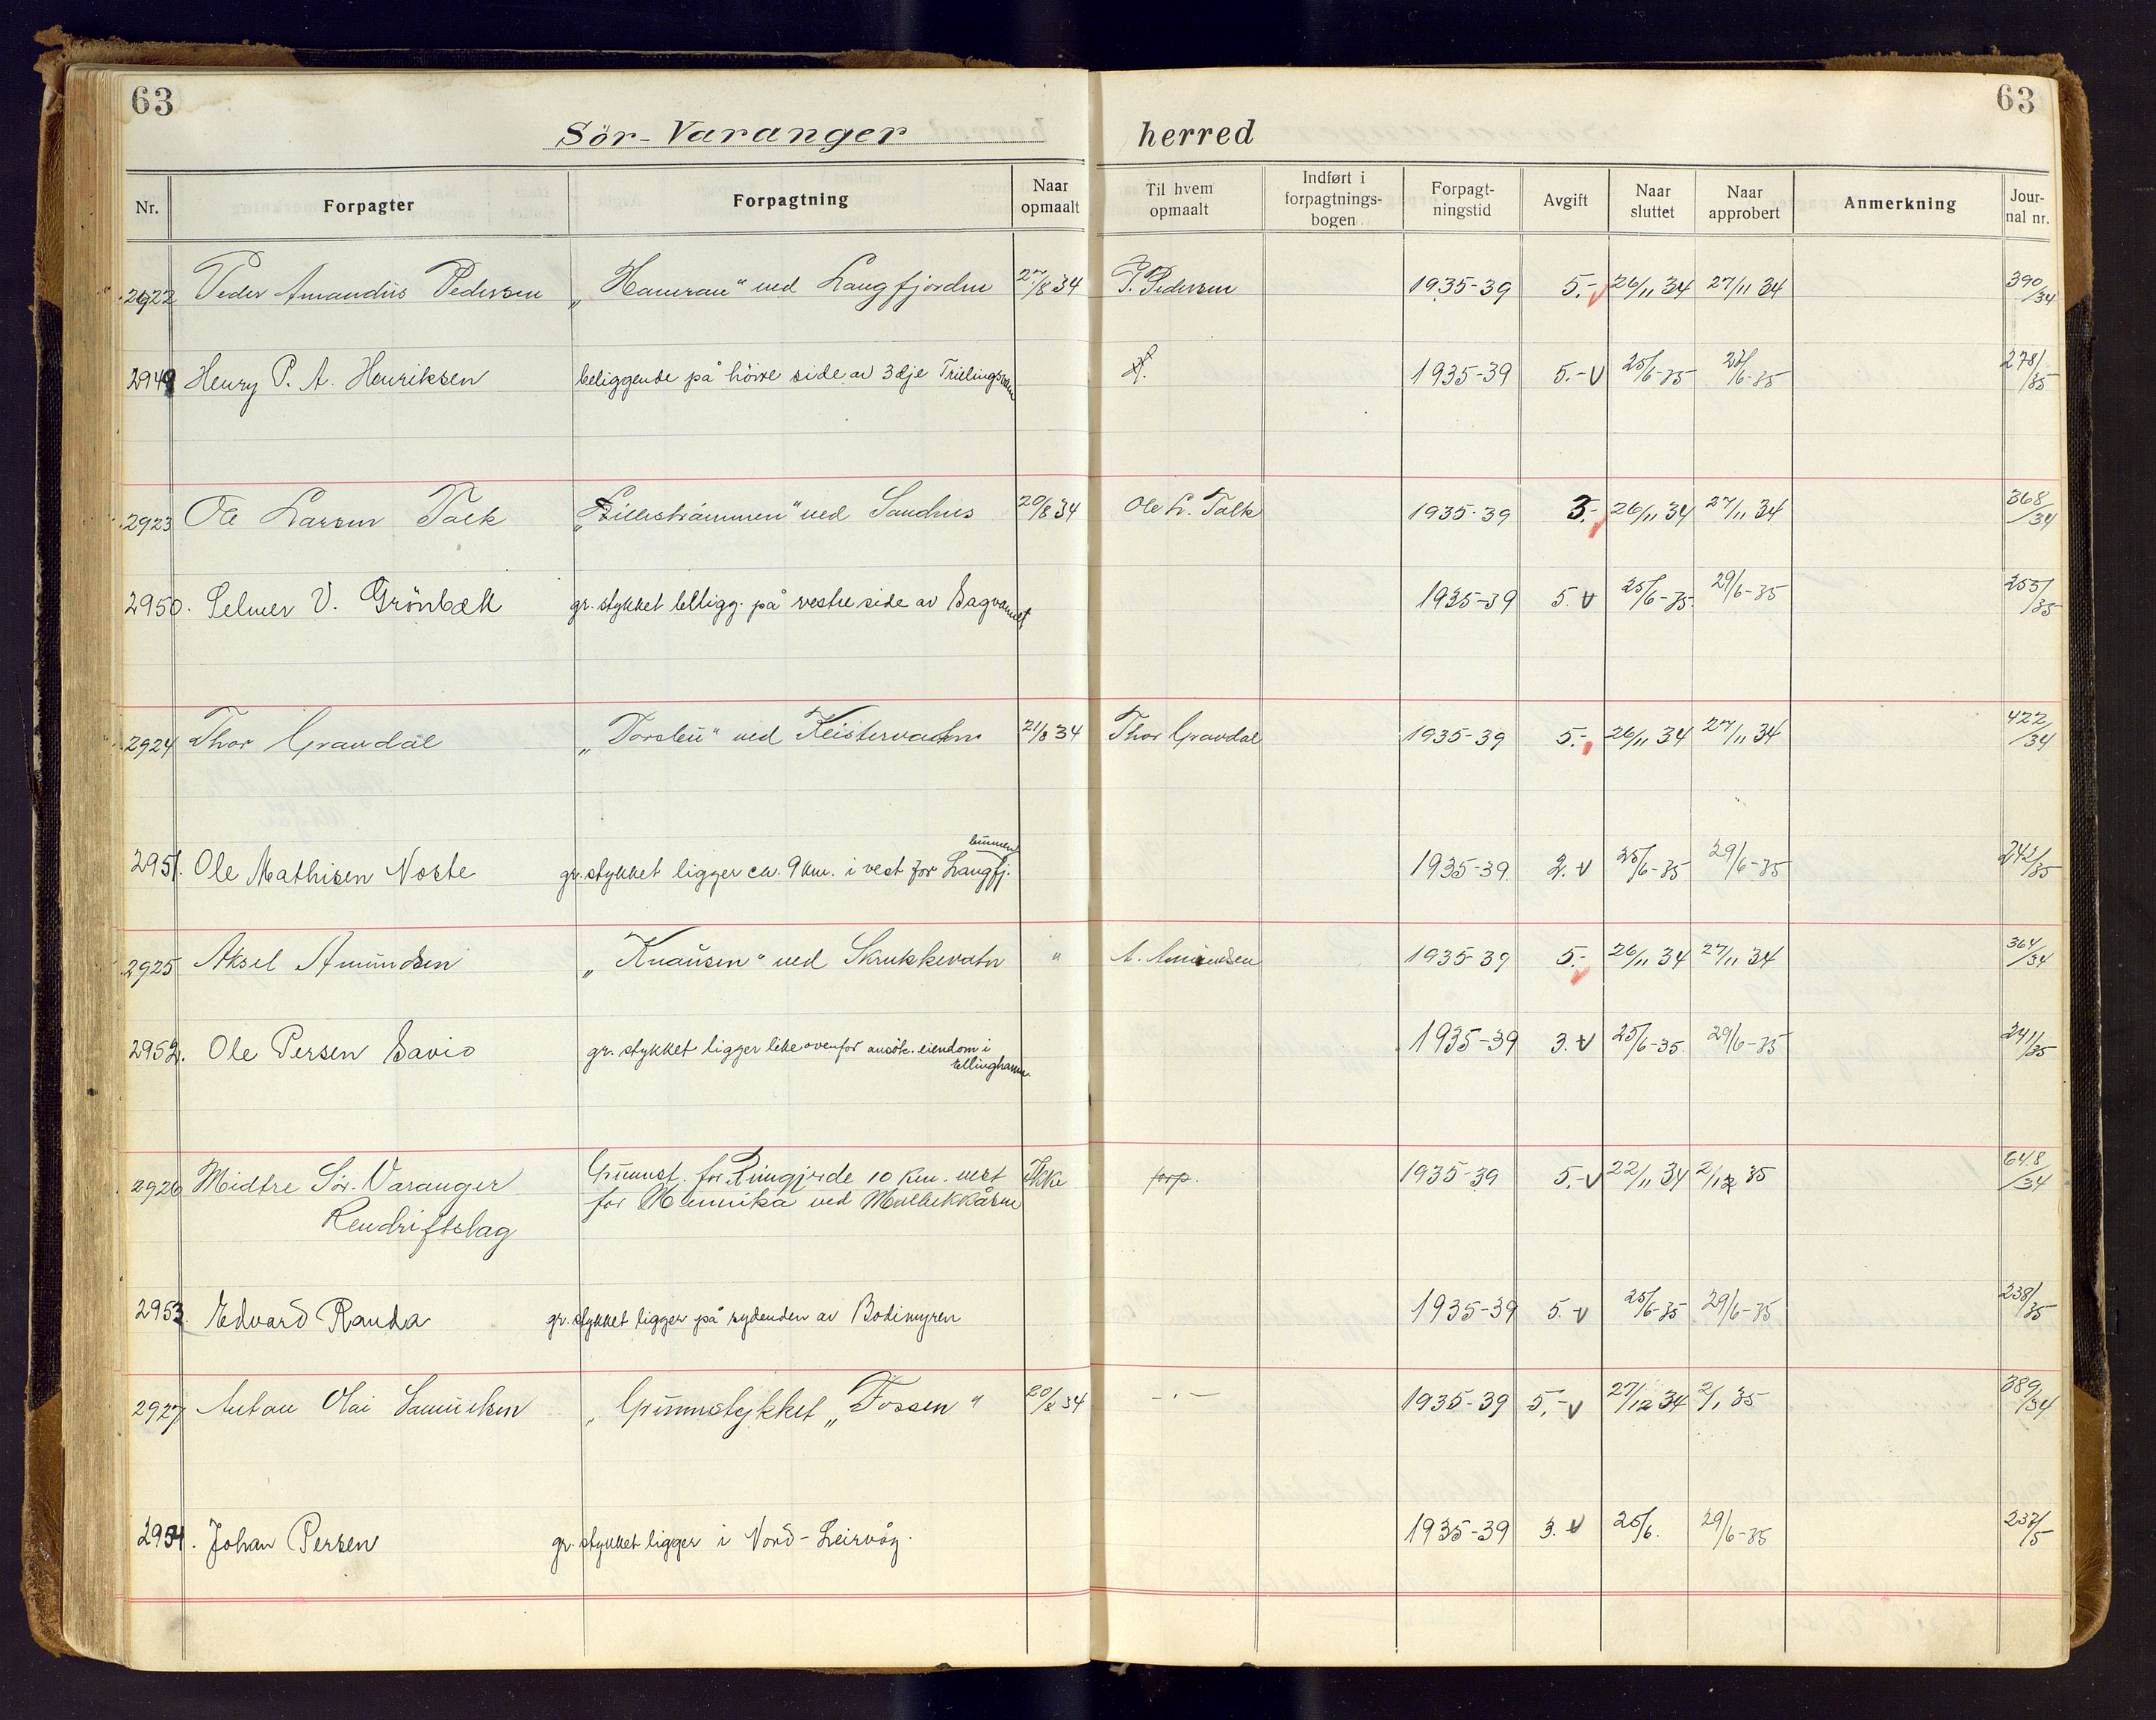 63
63
Sör-Varanger herred
Nr. Forpagter Forpagtning Naar opmaalt Til hvem opmaalt Indført i forpagtnings-bogen Forpagt-ningstid Avgift Naar sluttet Naar approbert Anmerkning Jour-nal nr.
2922 Peder Amandus Pedersen „Hamran" ved Langfjorden 27/8 34 P. Pedersen 1935-39 5.- 26/11 34 27/11 34 390/34
2949 Henry P. A. Henriksen beliggende på höire side av 3dje 1935-39 5.- V 25/6-35 29/6-35 278/35
2923 Ole Larsen Talk ved Sandnes 20/8 34 Ole L. Talk 1935-39 3.- 26/11 34 27/11 34 368/34
2950. Selmer V. Grönbæk gr. stykket beligg. på vestre side av Sagvannet 1935-39 5. V 25/6-35. 29/6-35 255/35
2924 Thor Gravdal „Torsbu" ved 21/8 34 Thor Gravdal 1935-39 5.- 26/11 34 27/11 34 422/34
2951. Ole Mathisen Noste gr. stykket ligger ca. 9 km. i vest for Langfj. bunnen 1935-39. 2. V 25/6-35 29/6-35 242/35
2925 Aksel Amundsen „Knausen" ved Skrukkevatn " A. Amundsen 1935-39 5.- 26/11 34 27/11 34 364/34
2952. Ole Persen Savio gr. stykket ligger like ovenfor ansök. eiendom i
1935-39 3. V 25/6-35. 29/6-35 241/35
2926 Midtre Sör-Varanger Grunnst. for Ringjerde 10 km. vest Ikke forp. 1935-39 5.- V 22/11 34 2/12 35 648/34
Rendriftslag for Mennika ved
2953. Edvard Randa gr. stykket ligger på sydenden av Bodimyren 1935-39 5. V 25/6-35 29/6-35 238/35
2927 Anton Olai Samuelsen „Grunnstykket „Fossen" 20/8 34 -"- 1935-39 5.- V 27/12 34 2/1 35 389/34
2954. Johan Persen gr. stykket ligger i Nord-Leirvåg. 1935-39 3. V 25/6. 29/6-35 237/5